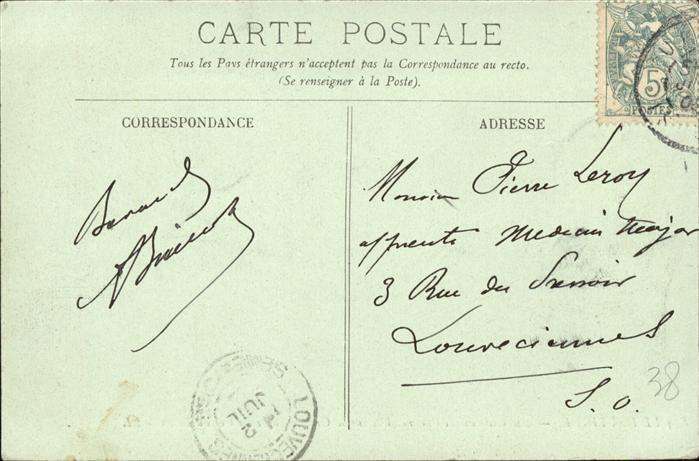 CARTE POSTALE
Tous les Pays étrangers n'acceptent pas la Correspondance au recto.
(Se renseigner à la Poste).
CORRESPONDANCE
ADRESSE
5c
POSTES
Monsieur Pierre Leroy
apprenti Medecin Major
3 Rue du Pressoir
Louveciennes
S. O.
38
LOUVECIENNES
2
JUIL